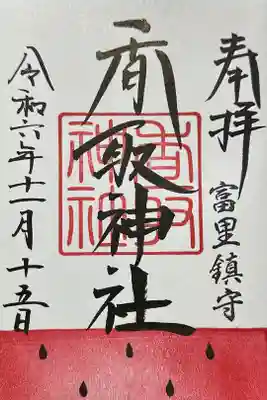 奉拝
富里鎮守
香取神社
香取神社
令和六年十一月十五日